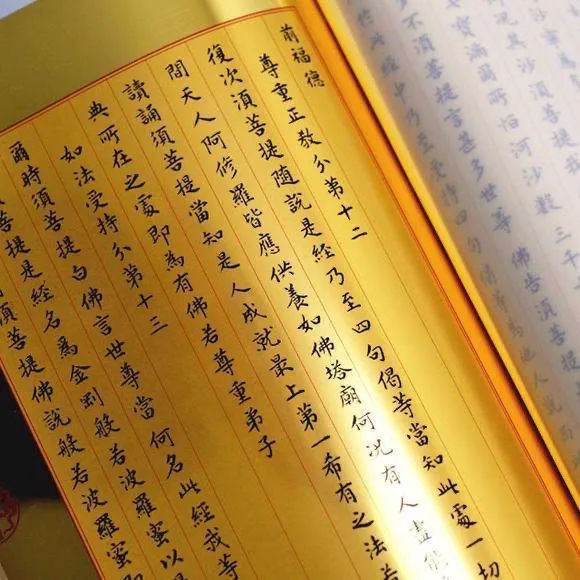 七寶滿爾所恒河沙數三千
多不須菩提言甚多世尊佛告須菩提
於此經中乃至受持四句偈等為他人說
前福德
尊重正教分第十二
復次須菩提隨說是經乃至四句偈等當知此處一切
間天人阿修羅皆應供養如佛塔廟何況有人盡能
讀誦須菩提當知是人成就最上第一希有之法若
典所在之處即為有佛若尊重弟子
如法受持分第十三
爾時須菩提白佛言世尊當何名此經我等
菩提是經名為金剛般若波羅蜜以
須菩提佛說般若波羅蜜即